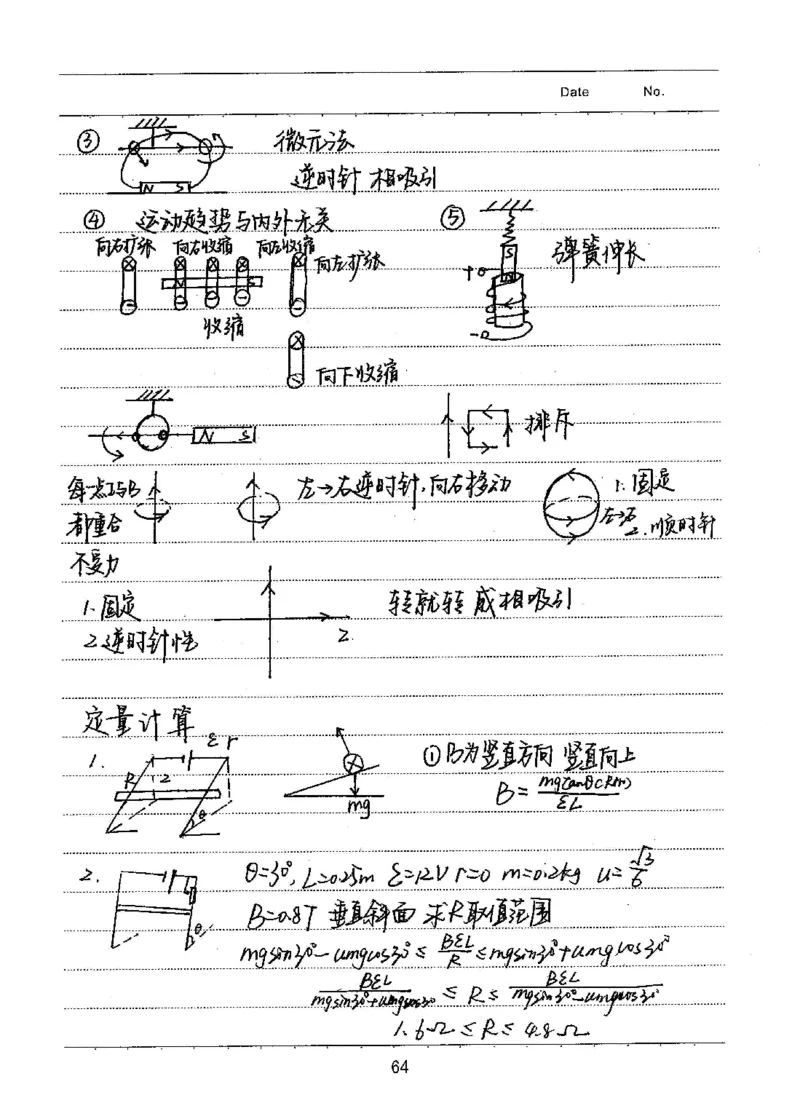 Date No.
③ 微元法
N S 逆时针 相吸引
④ 运动趋势与内外无关 ⑤
向右扩张 向右收缩 向左收缩 向左扩张
S N 弹簧伸长
N S
收缩
向下收缩
N S 排斥
每一点I与B 左→右逆时针,向右移动 1.固定
都重合 左→右 2.顺时针
不受力
1.固定 转就转 成相吸引
2.逆时针性 2
定量计算
1. ε r R θ mg ①B为竖直方向 竖直向上
B= mgtanθ(R+r)/εL
2. θ θ=30°, L=0.25m ε=12V r=0 m=0.2kg u=√3/6
B=0.8T 垂直斜面 求R取值范围
mgsin30°-umgcos30° ≤ BεL/R ≤ mgsin30°+umgcos30°
BεL/mgsin30°+umgcos30° ≤ R ≤ BεL/mgsin30°-umgcos30°
1.6Ω ≤ R ≤ 4.8Ω
64